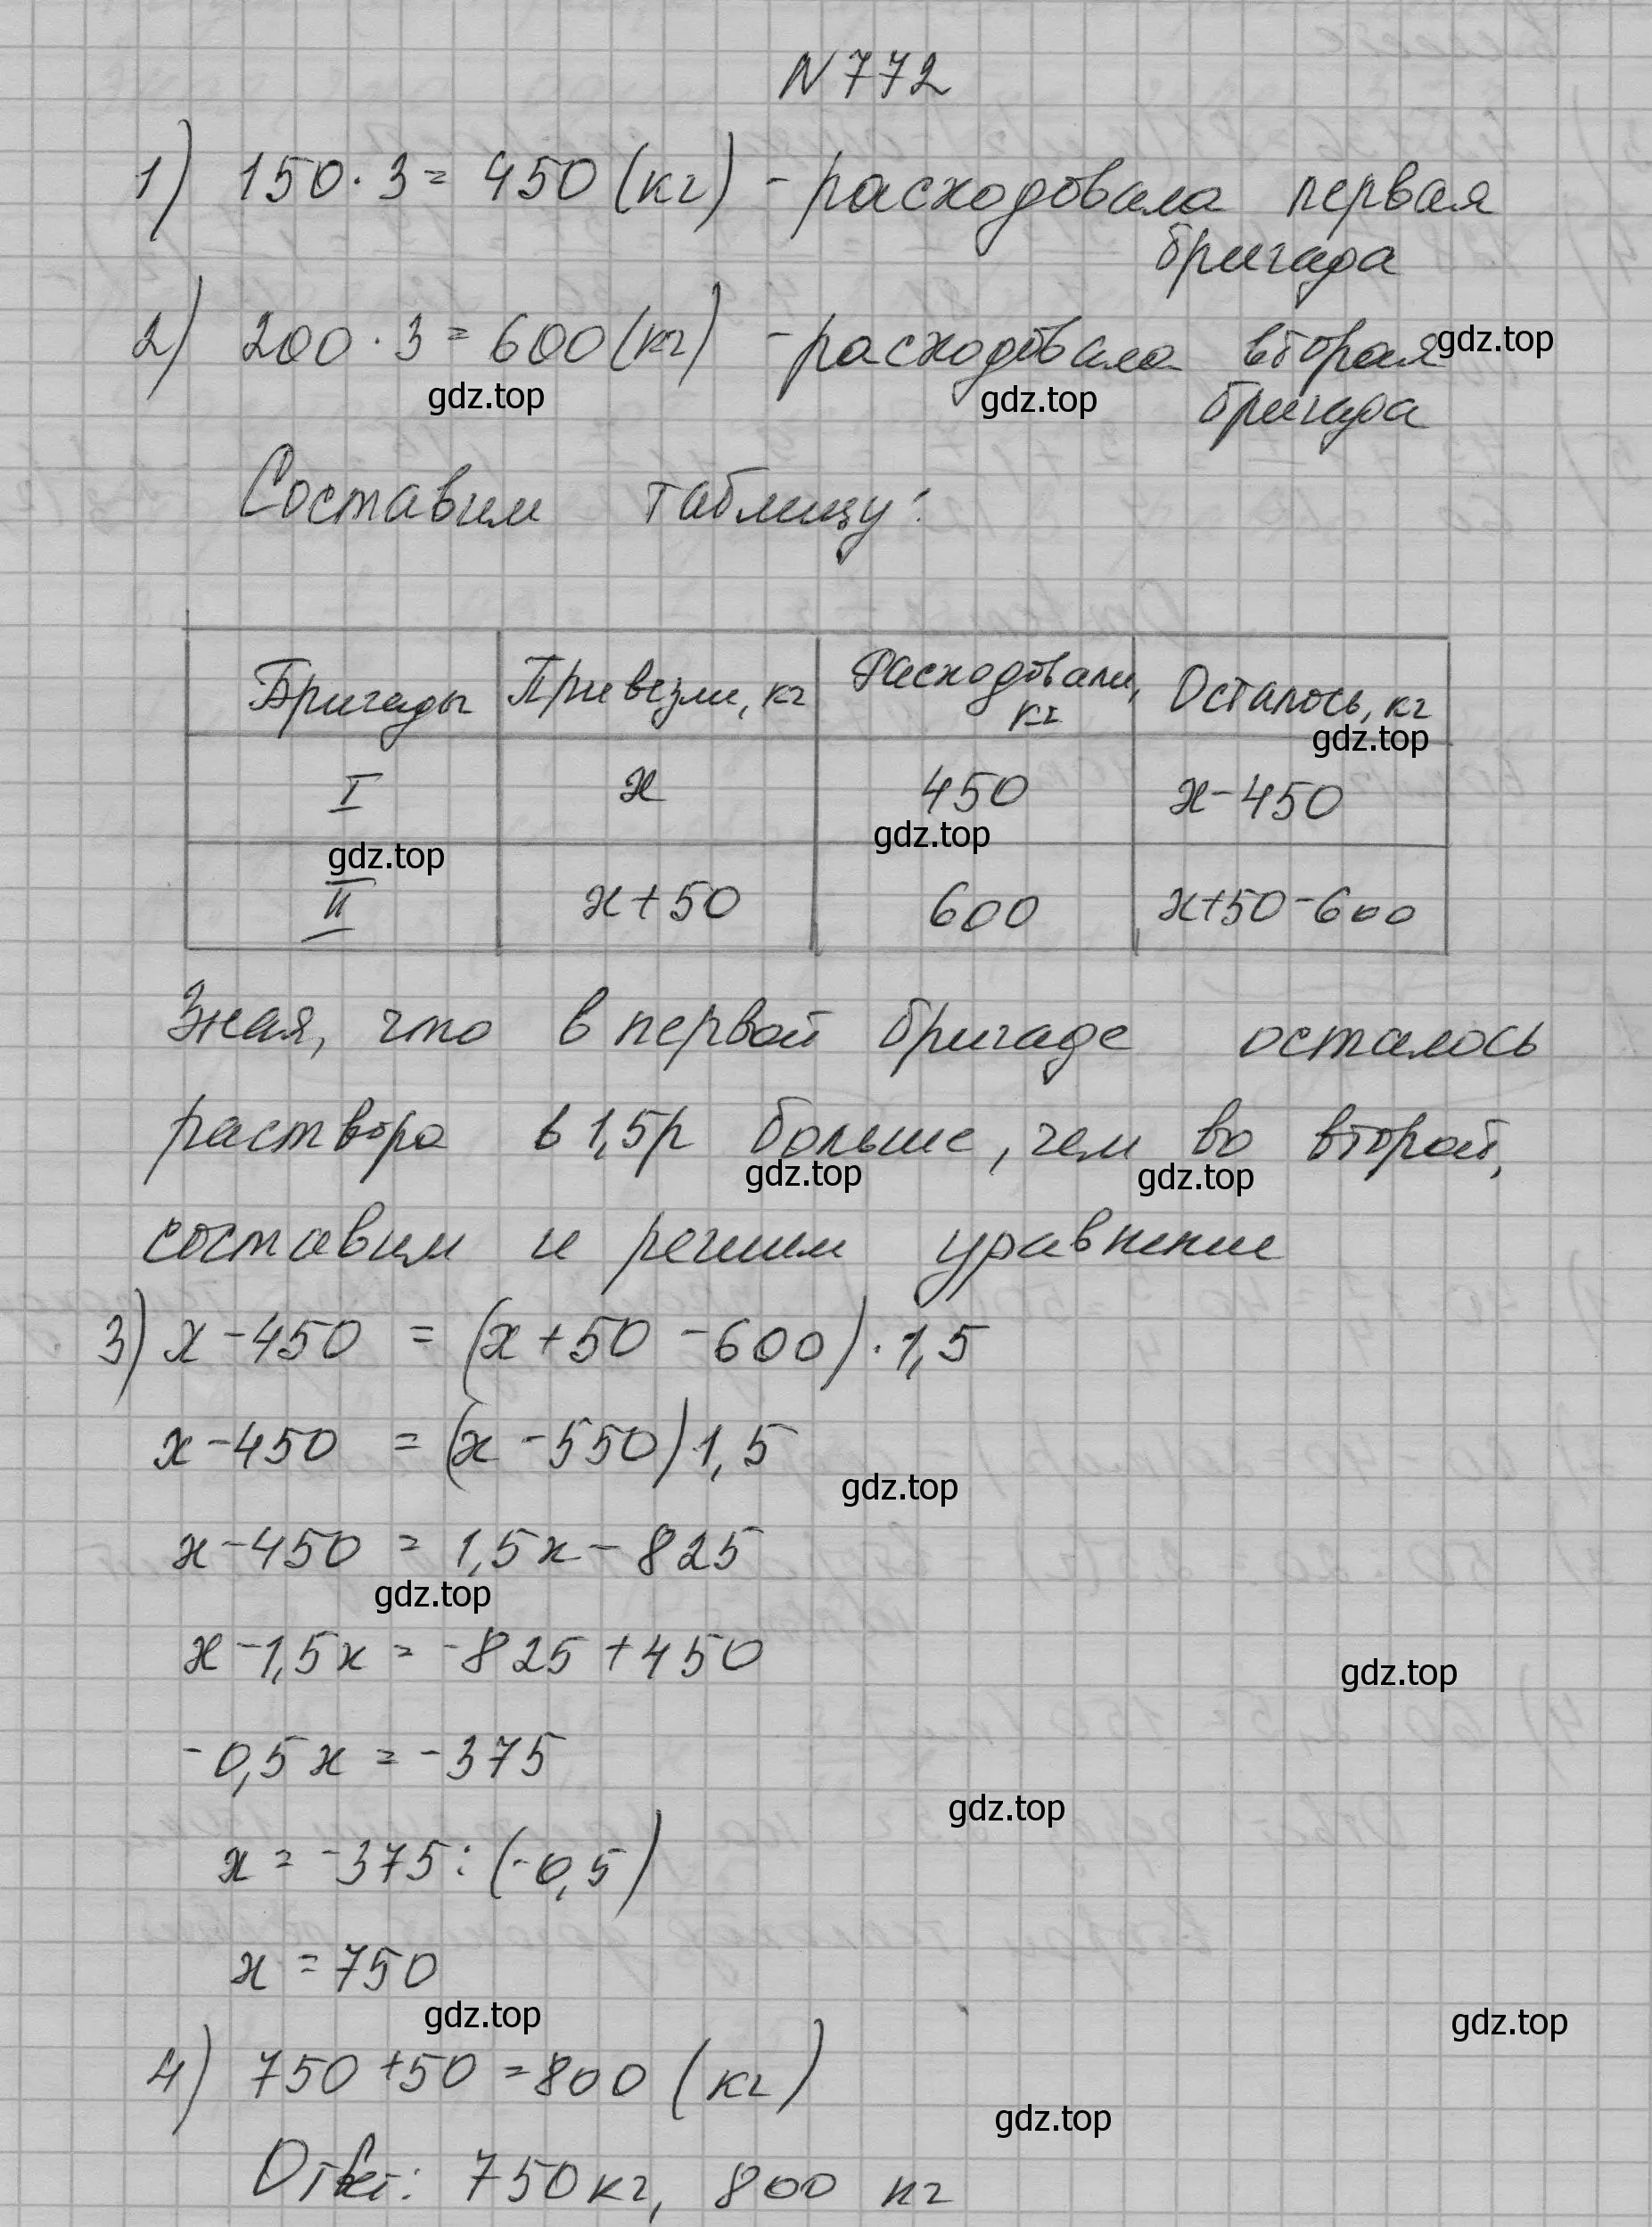 N 772
1) 150 · 3 = 450 (кг) - расходовала первая
бригада
2) 200 · 3 = 600 (кг) - расходовала вторая
gdz.top
gdz.top
gdz.top
бригада
Составим таблицу:
Бригады Привезли, кг Расходовали, кг Осталось, кг
gdz.top
I х 450 х - 450
gdz.top
gdz.top
II х + 50 600 х + 50 - 600
Зная, что в первой бригаде осталось
раствора в 1,5 р больше, чем во второй,
gdz.top
gdz.top
составим и решим уравнение
3) х - 450 = (х + 50 - 600) · 1,5
х - 450 = (х - 550) 1,5
gdz.top
х - 450 = 1,5х - 825
gdz.top
х - 1,5х = -825 + 450
gdz.top
-0,5х = -375
gdz.top
х = -375 : (-0,5)
х = 750
gdz.top
gdz.top
4) 750 + 50 = 800 (кг)
gdz.top
Ответ: 750 кг, 800 кг